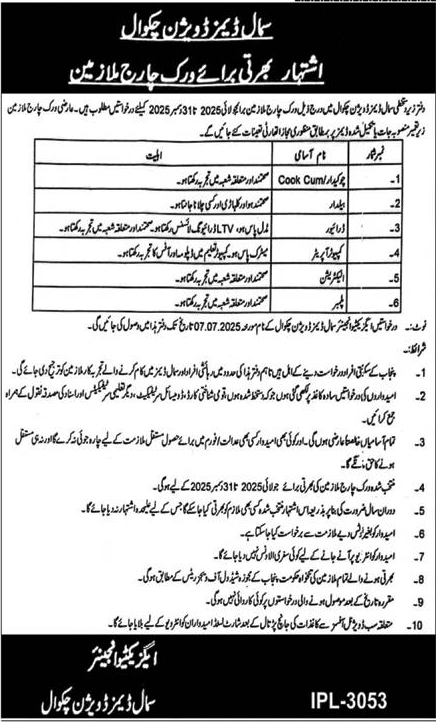 سمال ڈیمز ڈویژن چکوال
اشتہار بھرتی برائے ورک چارج ملازمین
دفتر زیر دستخطی سمال ڈیمز ڈویژن چکوال میں درج ذیل ورک چارج ملازمین برائے جولائی 2025 تا 31 دسمبر 2025 کیلئے درخواستیں مطلوب ہیں۔ عارضی ورک چارج ملازمین
زیر تعمیر منصوبہ جات یا تکمیل شدہ ڈیمز پر بمطابق منظوری مجاز اتھارٹی تعینات کئے جائیں گے۔
نمبر شمار نام آسامی اہلیت
1۔ چوکیدار/Cook Cum صحتمند اور متعلقہ شعبہ میں تجربہ رکھتا ہو۔
2۔ بیلدار صحتمند ہو اور کلہاڑی اور کسی چلانا جانتا ہو۔
3۔ ڈرائیور مڈل پاس ہو، LTV ڈرائیونگ لائسنس رکھتا ہو۔ صحتمند اور متعلقہ شعبہ میں تجربہ رکھتا ہو۔
4۔ کمپیوٹر آپریٹر میٹرک پاس ہو۔ کمپیوٹر تعلیم میں ڈپلومہ اور آفس کا تجربہ رکھتا ہو۔
5۔ الیکٹریشن صحتمند اور متعلقہ شعبہ میں تجربہ رکھتا ہو۔
6۔ پلمبر صحتمند اور متعلقہ شعبہ میں تجربہ رکھتا ہو۔
نوٹ:۔ درخواستیں ایگزیکٹیو انجینئر سمال ڈیمز ڈویژن چکوال کے نام مورخہ 07.07.2025 تاریخ تک دفتر ہذا میں وصول کی جائیں گی۔
شرائط:۔
1۔ پنجاب کے سکونتی افراد درخواست دینے کے اہل ہیں تاہم دفتر ہذا کی حدود میں رہائشی افراد اور سمال ڈیمز میں کام کرنے والے تجربہ کار ملازمین کو ترجیح دی جائے گی۔
2۔ امیدواروں کی درخواستیں سادہ کاغذ پر لکھی گئی ہوں جو کہ دستخط شدہ ہوں، قومی شناختی کارڈ، ڈومیسائل سرٹیفکیٹ، دیگر تعلیمی سرٹیفکیٹس اور اسناد کی مصدقہ نقول کے ہمراہ
جمع کرائیں۔
3۔ تمام آسامیاں خالصتاً عارضی ہوں گی۔ اور کوئی بھی امیدوار کسی بھی عدالت/فورم میں برائے حصول مستقل ملازمت کے لیے چارہ جوئی نہ کرے گا اور نہ ہی مستقل
ہونے کا حق مانگے گا۔
4۔ منتخب شدہ ورک چارج ملازمین کی بھرتی برائے جولائی 2025 تا 31 دسمبر 2025 کے لیے ہوگی۔
5۔ دوران سال ضرورت کی بناء پر بذریعہ اس اشتہار منتخب شدہ کسی بھی ملازم کو بھرتی کیا جا سکے گا جس کے لیے علیحدہ اشتہار نہ دیا جائے گا۔
6۔ امیدوار کو بغیر نوٹس دیے ملازمت سے برخواست کیا جا سکتا ہے۔
7۔ امیدوار کو انٹرویو پر آنے جانے کے لیے کوئی سفری الاؤنس نہیں دیا جائے گا۔
8۔ بھرتی ہونے والے تمام ملازمین کی تنخواہ حکومت پنجاب کے مجوزہ شیڈول آف ویجز ریٹس کے مطابق ہوگی۔
9۔ مقررہ تاریخ کے بعد موصول ہونے والی درخواستوں پر کوئی کارروائی نہیں ہوگی۔
10۔ متعلقہ سب ڈویژنل آفسز سے کاغذات کی جانچ پڑتال کے بعد شارٹ لسٹڈ امیدواران کو انٹرویو کے لیے بلایا جائے گا۔
ایگزیکٹیو انجینئر
سمال ڈیمز ڈویژن چکوال
IPL-3053